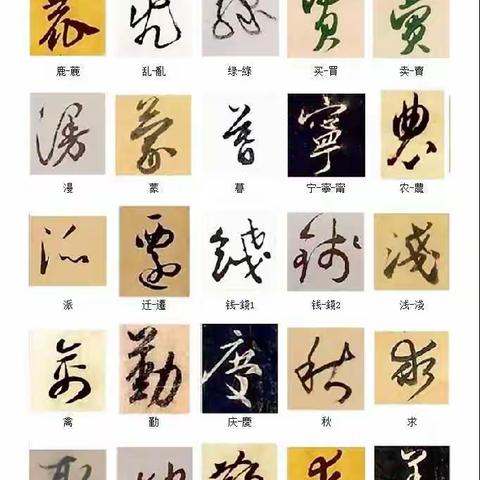 鹿- 乱-亂 绿-綠 买-買 卖-賣
漫 蒙 暮 宁-寧-甯 农-農
派 迁-遷 钱-錢1 钱-錢2 浅-淺
禽 勤 庆-慶 秋 求